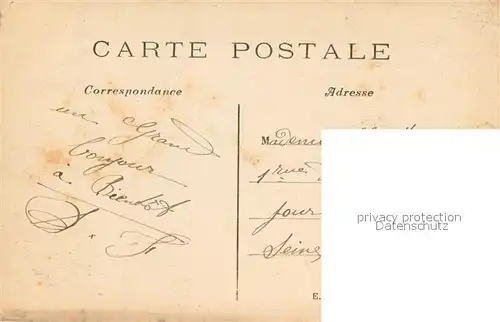 CARTE POSTALE
Correspondance
Adresse
un Grand
bonjour
à Bientôt
Madem
1 rue
Jour
Seine
E.
privacy protection
Datenschutz